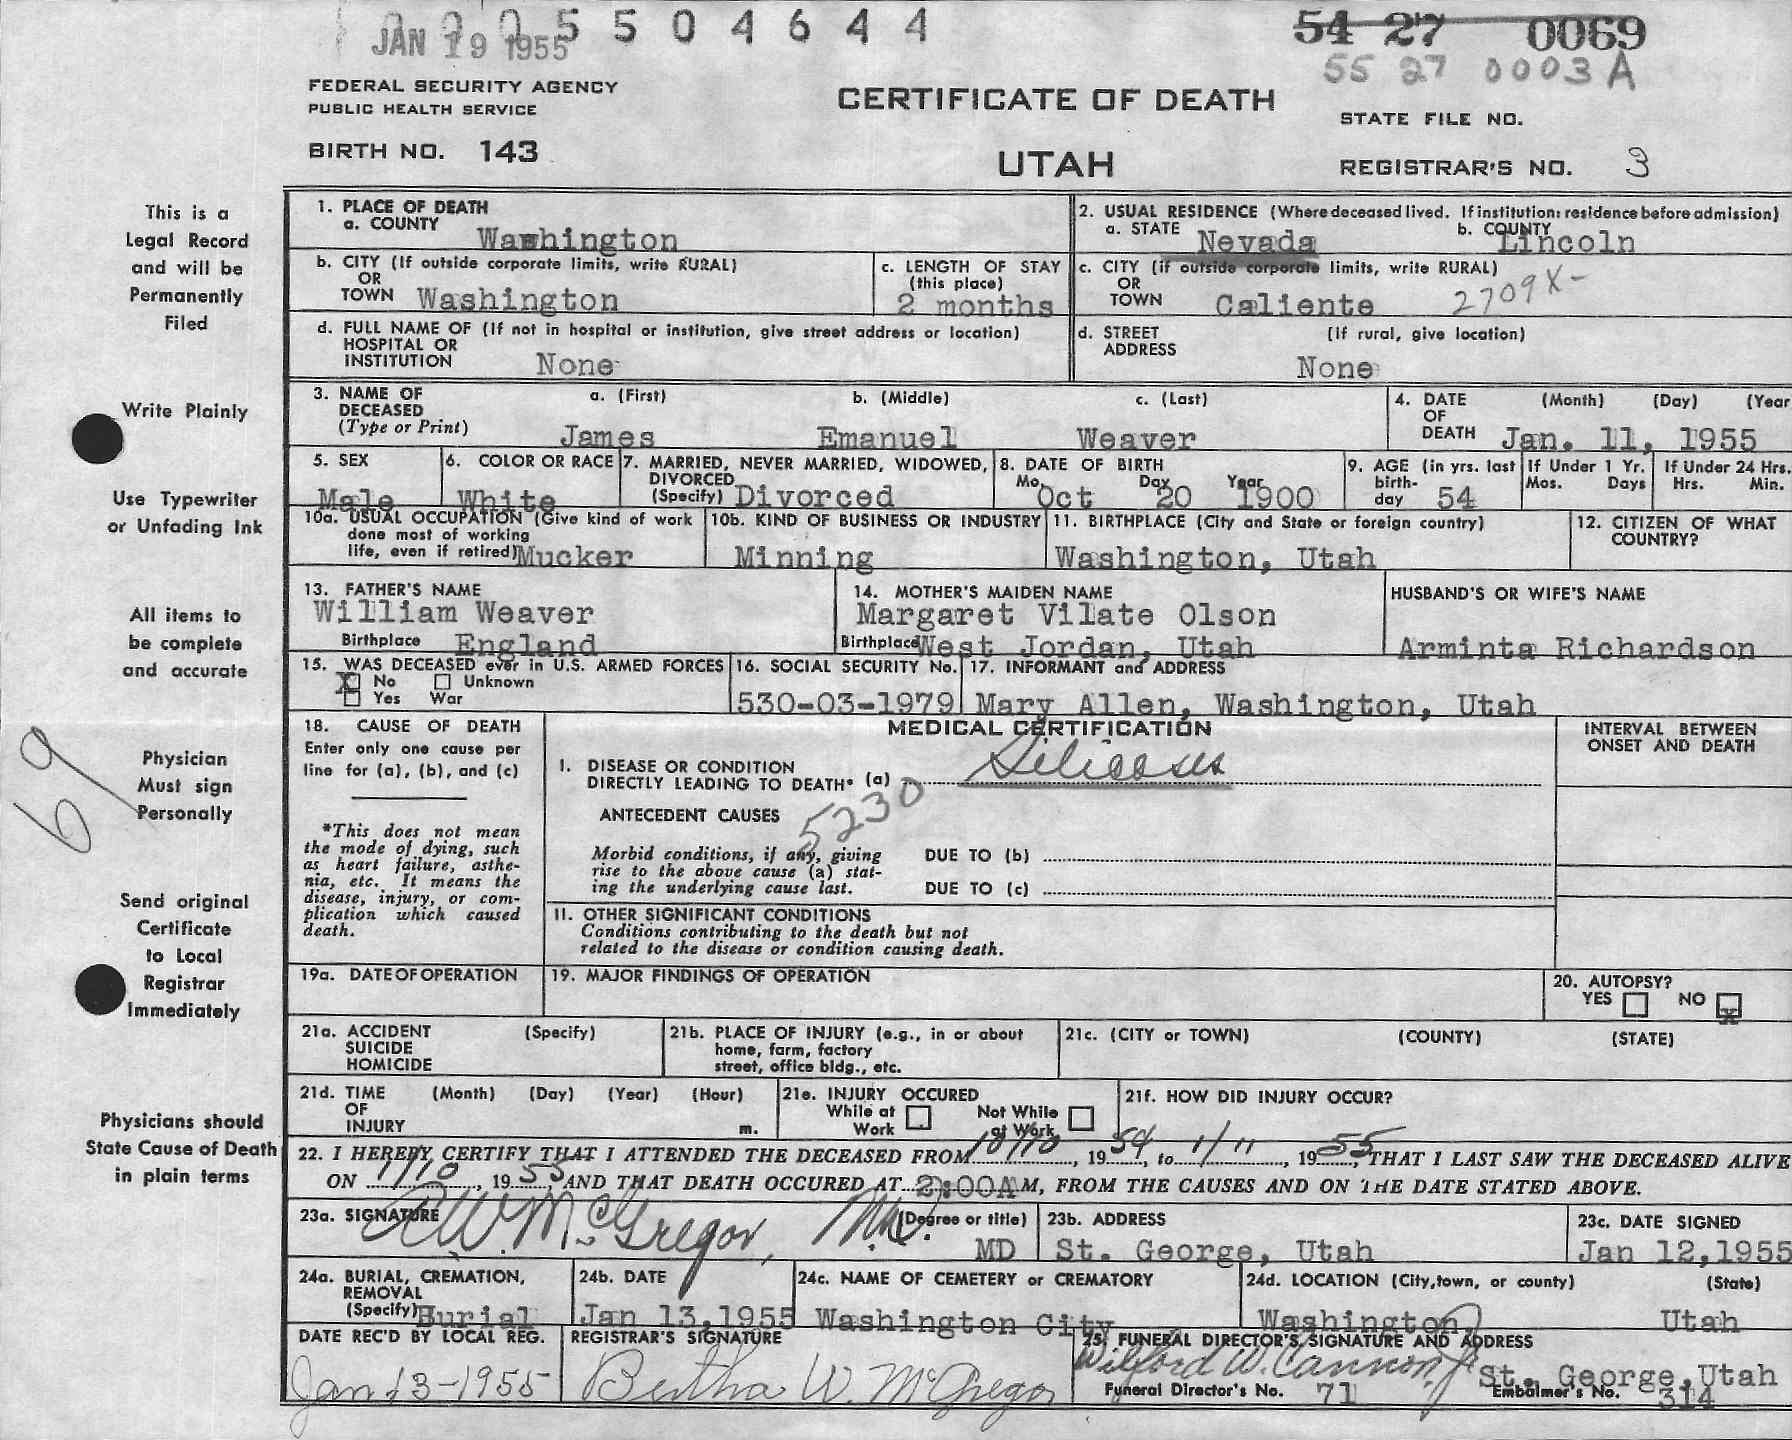 0005504644
JAN 19 1955
54 27 0069
55 27 0003 A
FEDERAL SECURITY AGENCY
PUBLIC HEALTH SERVICE
CERTIFICATE OF DEATH
STATE FILE NO.
BIRTH NO. 143
UTAH
REGISTRAR'S NO. 3
This is a
Legal Record
and will be
Permanently
Filed
Write Plainly
Use Typewriter
or Unfading Ink
All items to
be complete
and accurate
69
Physician
Must sign
Personally
Send original
Certificate
to Local
Registrar
Immediately
Physicians should
State Cause of Death
in plain terms
1. PLACE OF DEATH
a. COUNTY Washington
2. USUAL RESIDENCE (Where deceased lived. If institution: residence before admission)
a. STATE Nevada b. COUNTY Lincoln
b. CITY (If outside corporate limits, write RURAL)
OR
TOWN Washington
c. LENGTH OF STAY
(this place)
2 months
c. CITY (if outside corporate limits, write RURAL)
OR
TOWN Caliente 2709X-
d. FULL NAME OF (If not in hospital or institution, give street address or location)
HOSPITAL OR
INSTITUTION None
d. STREET (If rural, give location)
ADDRESS
None
3. NAME OF a. (First) b. (Middle) c. (Last)
DECEASED
(Type or Print) James Emanuel Weaver
4. DATE (Month) (Day) (Year
OF
DEATH Jan. 11, 1955
5. SEX
Male
6. COLOR OR RACE
White
7. MARRIED, NEVER MARRIED, WIDOWED,
DIVORCED
(Specify) Divorced
8. DATE OF BIRTH
Mo. Day Year
Oct 20 1900
9. AGE (in yrs. last
birth-
day 54
If Under 1 Yr.
Mos. Days
If Under 24 Hrs.
Hrs. Min.
10a. USUAL OCCUPATION (Give kind of work
done most of working
life, even if retired) Mucker
10b. KIND OF BUSINESS OR INDUSTRY
Minning
11. BIRTHPLACE (City and State or foreign country)
Washington, Utah
12. CITIZEN OF WHAT
COUNTRY?
13. FATHER'S NAME
William Weaver
Birthplace England
14. MOTHER'S MAIDEN NAME
Margaret Vilate Olson
Birthplace West Jordan, Utah
HUSBAND'S OR WIFE'S NAME
Arminta Richardson
15. WAS DECEASED ever in U.S. ARMED FORCES
X No Unknown
Yes War
16. SOCIAL SECURITY No.
530-03-1979
17. INFORMANT and ADDRESS
Mary Allen, Washington, Utah
18. CAUSE OF DEATH
Enter only one cause per
line for (a), (b), and (c)
*This does not mean
the mode of dying, such
as heart failure, asthe-
nia, etc. It means the
disease, injury, or com-
plication which caused
death.
MEDICAL CERTIFICATION
I. DISEASE OR CONDITION
DIRECTLY LEADING TO DEATH* (a) Silicosis
5230
ANTECEDENT CAUSES
Morbid conditions, if any, giving
rise to the above cause (a) stat-
ing the underlying cause last.
DUE TO (b)
DUE TO (c)
II. OTHER SIGNIFICANT CONDITIONS
Conditions contributing to the death but not
related to the disease or condition causing death.
INTERVAL BETWEEN
ONSET AND DEATH
19a. DATE OF OPERATION
19. MAJOR FINDINGS OF OPERATION
20. AUTOPSY?
YES NO X
21a. ACCIDENT (Specify)
SUICIDE
HOMICIDE
21b. PLACE OF INJURY (e.g., in or about
home, farm, factory
street, office bldg., etc.
21c. (CITY or TOWN) (COUNTY) (STATE)
21d. TIME (Month) (Day) (Year) (Hour)
OF
INJURY m.
21e. INJURY OCCURED
While at Not While
Work at Work
21f. HOW DID INJURY OCCUR?
22. I HEREBY CERTIFY THAT I ATTENDED THE DECEASED FROM 10/10, 1954, to 1/11, 1955, THAT I LAST SAW THE DECEASED ALIVE
ON 1/10, 1955, AND THAT DEATH OCCURED AT 2:00A M, FROM THE CAUSES AND ON THE DATE STATED ABOVE.
23a. SIGNATURE (Degree or title)
R W. McGregor, M.D. MD
23b. ADDRESS
St. George, Utah
23c. DATE SIGNED
Jan 12,1955
24a. BURIAL, CREMATION,
REMOVAL
(Specify) Burial
24b. DATE
Jan 13,1955
24c. NAME OF CEMETERY or CREMATORY
Washington City
24d. LOCATION (City, town, or county) (State)
Washington, Utah
DATE REC'D BY LOCAL REG.
Jan 13-1955
REGISTRAR'S SIGNATURE
Bertha W. McGregor
25. FUNERAL DIRECTOR'S SIGNATURE AND ADDRESS
Wilford W. Cannon Jr St. George, Utah
Funeral Director's No. 71 Embalmer's No. 314